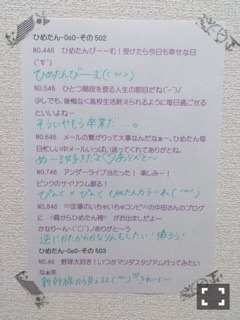 ひめたん-OoO-その 502
NO.446 ひめたんびーーむ！受けたら今日も幸せな日
(´∇`)
ひめたんびーむ
NO.546 ひとつ階段を登る人生の節目だね(´-`)ﾉ
少しでも、後悔なく高校生活終えられるように毎日過ごせる
といいよねー
そういやもう卒業だ
NO.646 メールの繋がりって大事なんだなぁー、毎日
毎日忙しい中メールいっぱい送ってくれてありがとね。
めー3好きだよ♡ありがと〜
NO.746 アンダーライブ当たった！ 楽しみー！
ピンクのサイリウム振る！
ぴんく×ぴんく ひめたんカラーね
NO.846 "定番のいちゃいちゃコンビ"の中田さんのブログ
に "肩からひめたん椅" が お出ましだよー
かなりーん-(´○`)ノありがと〜う
逆にかたからかなりんもしたい！撮ろう！
ひめたん-OoO-その 503
NO.46 野球大好き！いつかマツダスタジアム行ってみたい
なぁ笑
新幹線から見える きれい〜